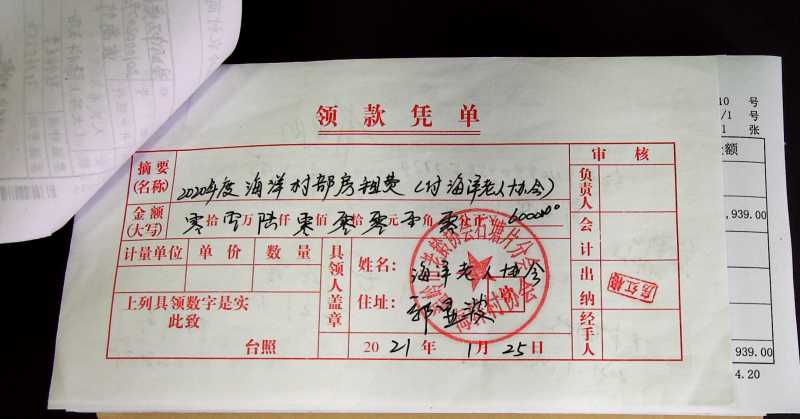 10 号
/1 号
1 张
领款凭单
摘要(名称) 2020年度海洋村部房租费(付海洋老人协会)
审核
金额
金额(大写) 零拾零万陆仟零佰零拾零元零角零分正 6000.00
负责人
,939.00
计量单位 单价 数量
具领人盖章
姓名: 海洋老人协会
会计
住址:
出纳
上列具领数字是实
此致
台照
2021年1月25日
经手人
939.00
4.20
老龄协会石塘片分会
海洋村协会